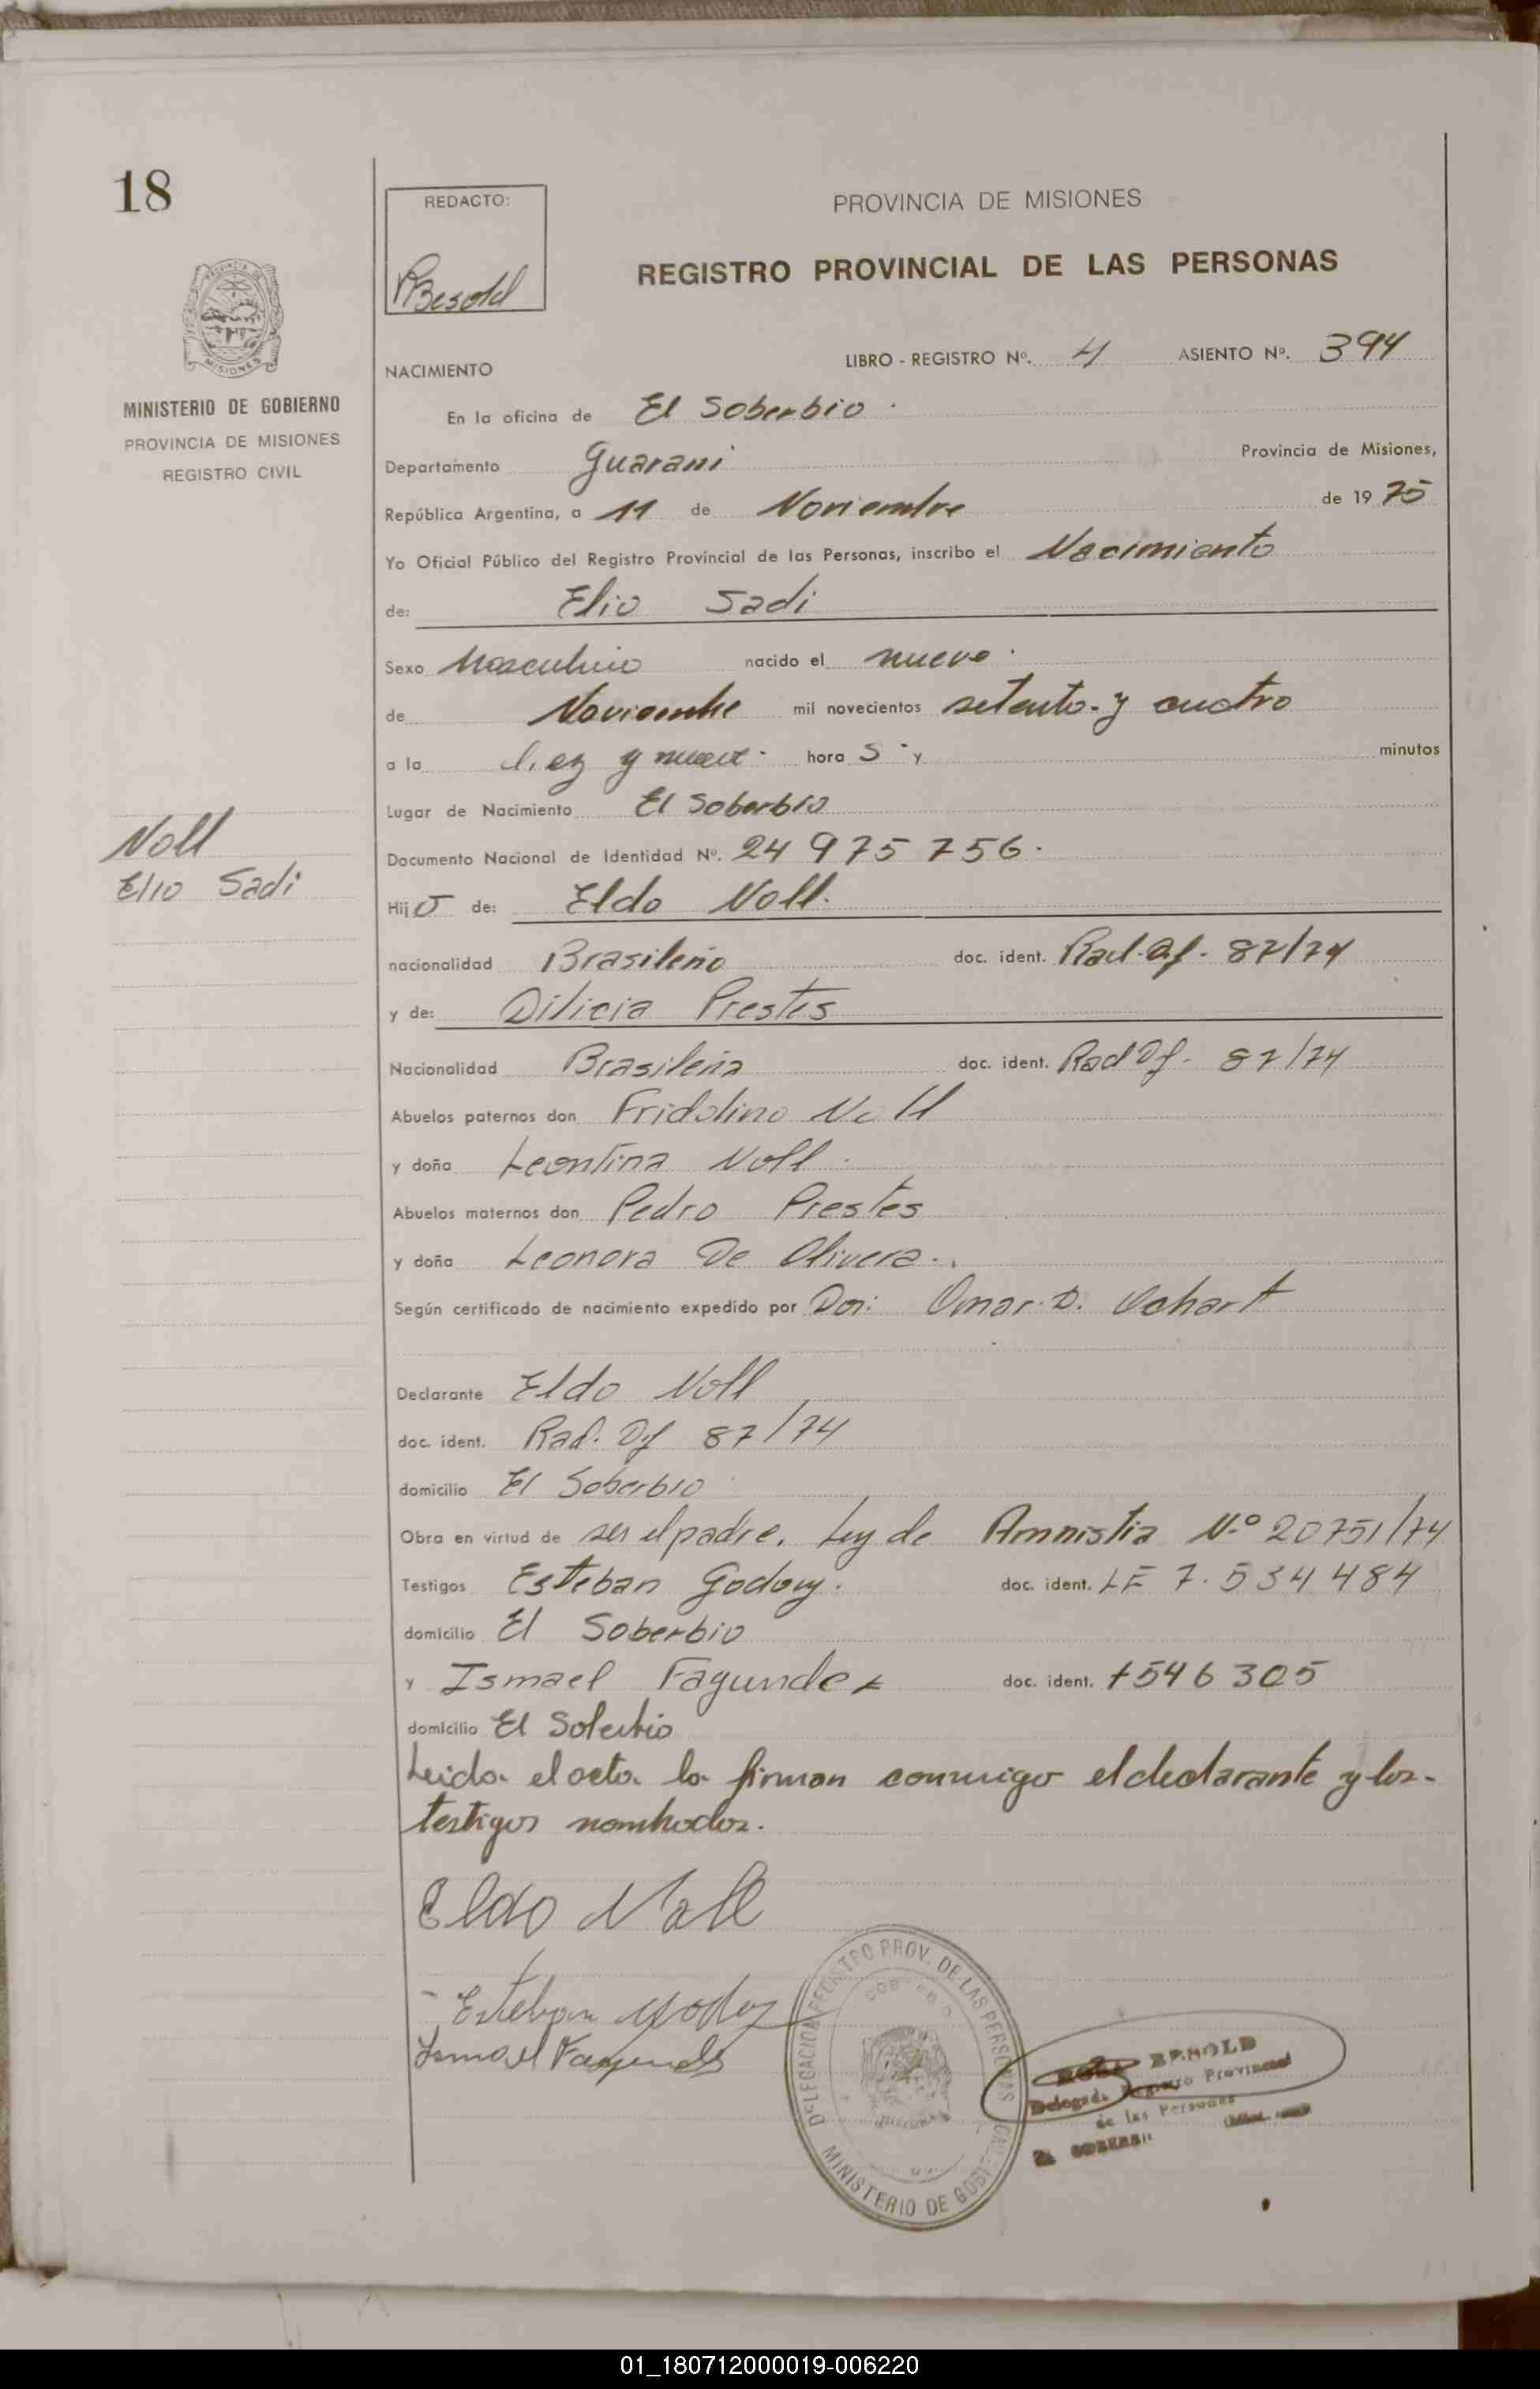 18
REDACTO:
PBesold
PROVINCIA DE MISIONES
REGISTRO PROVINCIAL DE LAS PERSONAS
PROVINCIA DE
MISIONES
MINISTERIO DE GOBIERNO
PROVINCIA DE MISIONES
REGISTRO CIVIL
NACIMIENTO LIBRO - REGISTRO Nº. 4 ASIENTO Nº. 394
En la oficina de El Soberbio.
Departamento Guarani Provincia de Misiones,
República Argentina, a 11 de Noviembre de 1975
Yo Oficial Público del Registro Provincial de las Personas, inscribo el Nacimiento
de: Elio Sadi
Sexo Masculino nacido el nueve.
de Noviembre mil novecientos setenta y cuatro
a la diez y nueve hora S y minutos
Lugar de Nacimiento El Soberbio
Documento Nacional de Identidad Nº. 24 975 756.
Noll
Elio Sadi
Hijo de: Eldo Noll.
nacionalidad Brasileño doc. ident. Rad. Df. 87/74
y de: Dilicia Prestes
Nacionalidad Brasileña doc. ident. Rad Df. 87/74
Abuelos paternos don Fridolino Noll
y doña Leontina Noll.
Abuelos maternos don Pedro Prestes
y doña Leonora De Olivera..
Según certificado de nacimiento expedido por Don: Omar. D. Ochart
Declarante Eldo Noll
doc. ident. Rad. Df 87/74
domicilio El Soberbio
Obra en virtud de ser el padre. Ley de Amnistia N.º 20751/74
Testigos Esteban Godoy. doc. ident. LE 7.534484
domicilio El Soberbio
y Ismael Fagundez doc. ident. 7546305
domicilio El Soberbio
Leida el acta la firman conmigo el declarante y los
testigos nombrados.
Eldo Noll
Esteban Godoy
Ismael Fagundes
DELEGACION REGISTRO PROV. DE LAS PERSONAS
MISIONES
MINISTERIO DE GOBIERNO
BESOLD
Delegada Registro Provincial
de las Personas
EL SOBERBIO
01_180712000019-006220